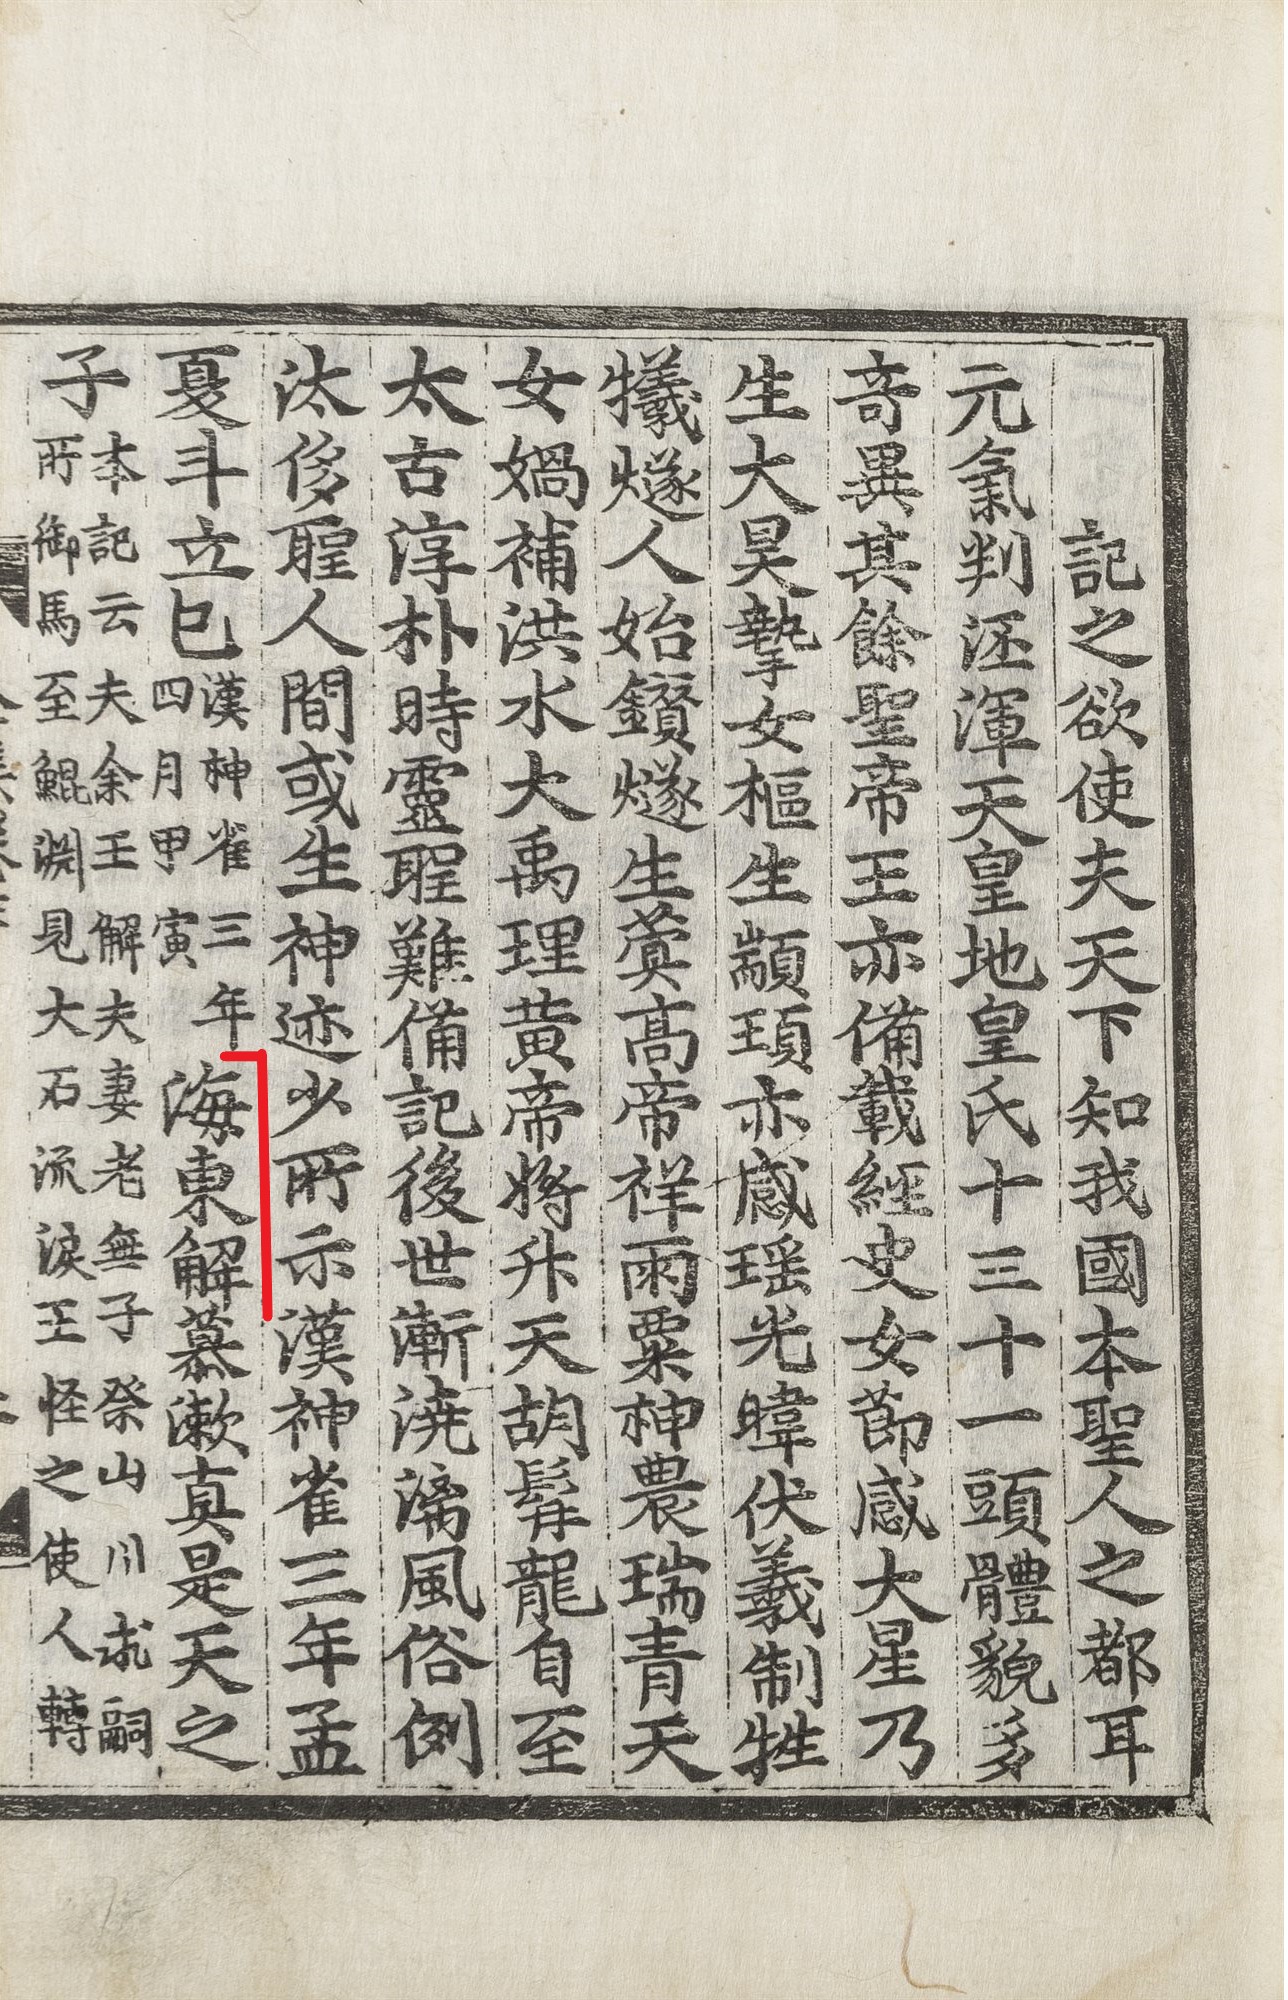 記之欲使夫天下知我國本聖人之都耳
元氣判沌渾天皇地皇氏十三十一頭體貌多
奇異其餘聖帝王亦備載經史女節感大星乃
生大昊摯女樞生顓頊亦感瑶光暐伏羲制牲
犧燧人始鑽燧生蓂高帝祥雨粟神農瑞青天
女媧補洪水大禹理黃帝將升天胡髯龍自至
太古淳朴時靈聖難備記後世漸澆漓風俗例
汰侈聖人間或生神迹少所示漢神雀三年孟
夏斗立巳漢神雀三年四月甲寅海東解慕漱真是天之
子本記云夫余王解夫妻老無子祭山川求嗣
所御馬至鯤淵見大石流淚王怪之使人轉